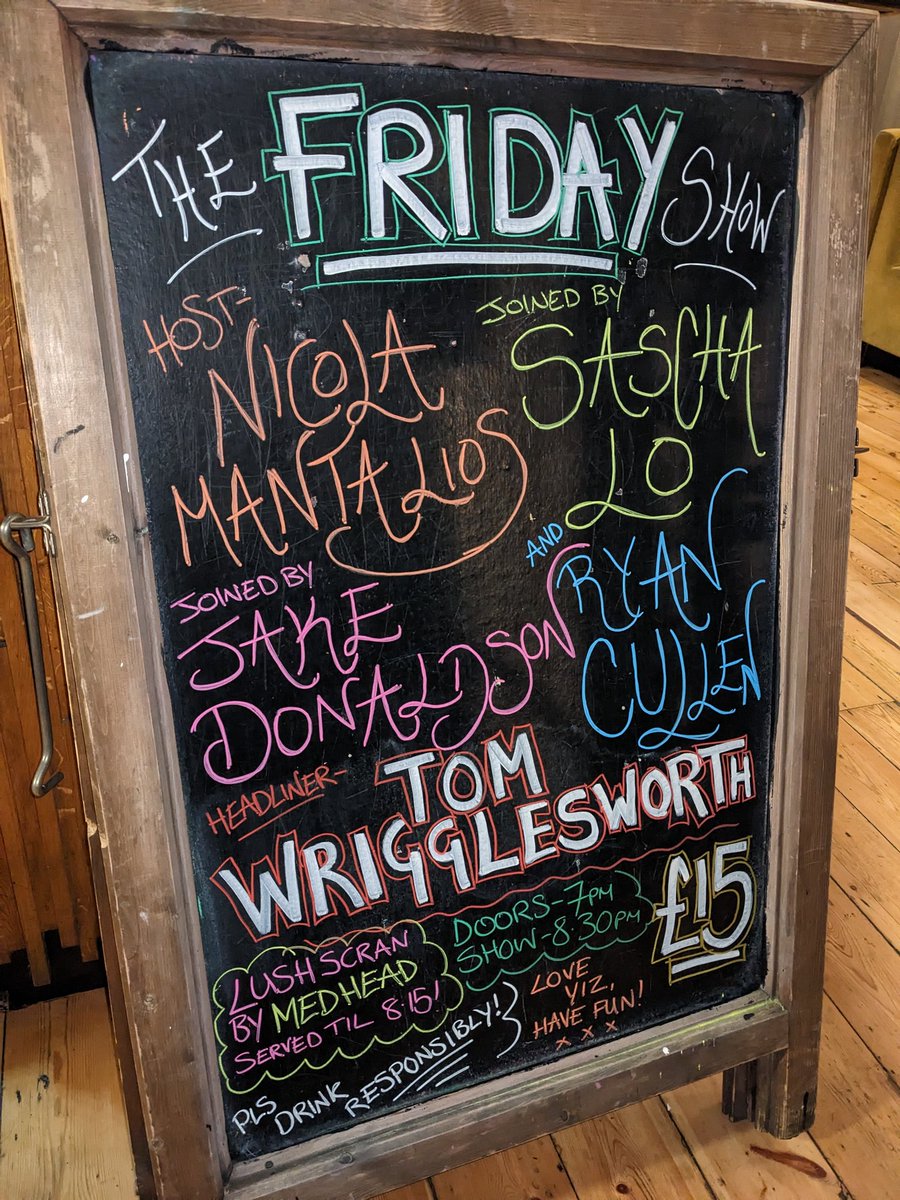 THE FRIDAY SHOW
HOST-
NICOLA
MANTALIOS
JOINED BY
SASCHA
LO
JOINED BY
JAKE
DONALDSON
AND
RYAN
CULLEN
HEADLINER-
TOM
WRIGGLESWORTH
DOORS-7PM
SHOW-8:30PM
£15
LUSH SCRAN
BY MEDHEAD
SERVED TIL 8:15!
LOVE
YIZ,
HAVE FUN!
x x x
PLS DRINK RESPONSIBLY!